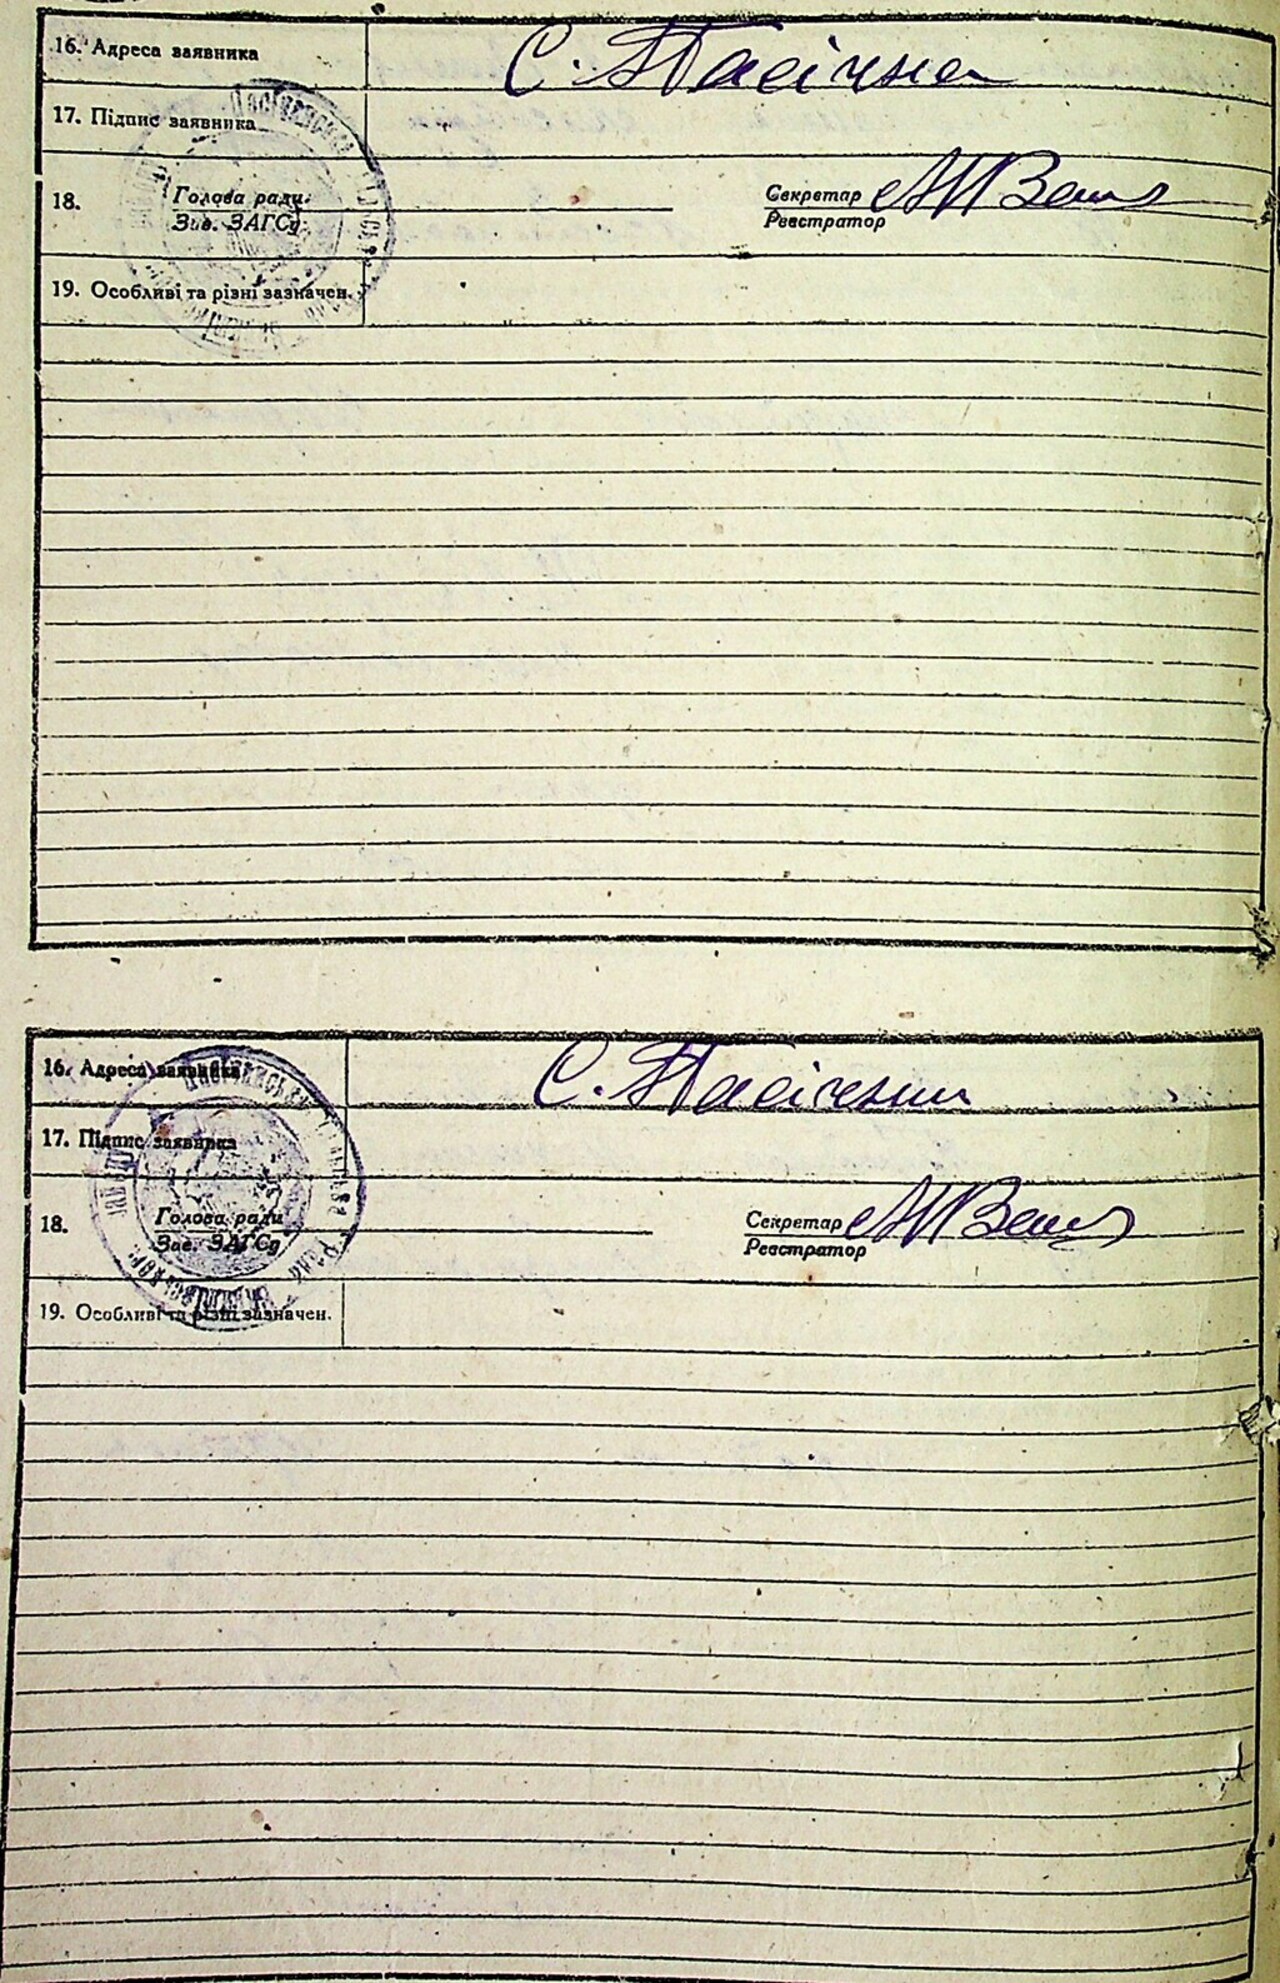 16. Адреса заявника С. Пасічна
17. Підпис заявника
18. Голова ради Секретар
Зав. ЗАГСу Реєстратор
19. Особливі та різні зазначен.
16. Адреса заявника С. Пасічни
17. Підпис заявника
18. Голова ради Секретар
Зав. ЗАГСу Реєстратор
19. Особливі та різні зазначен.